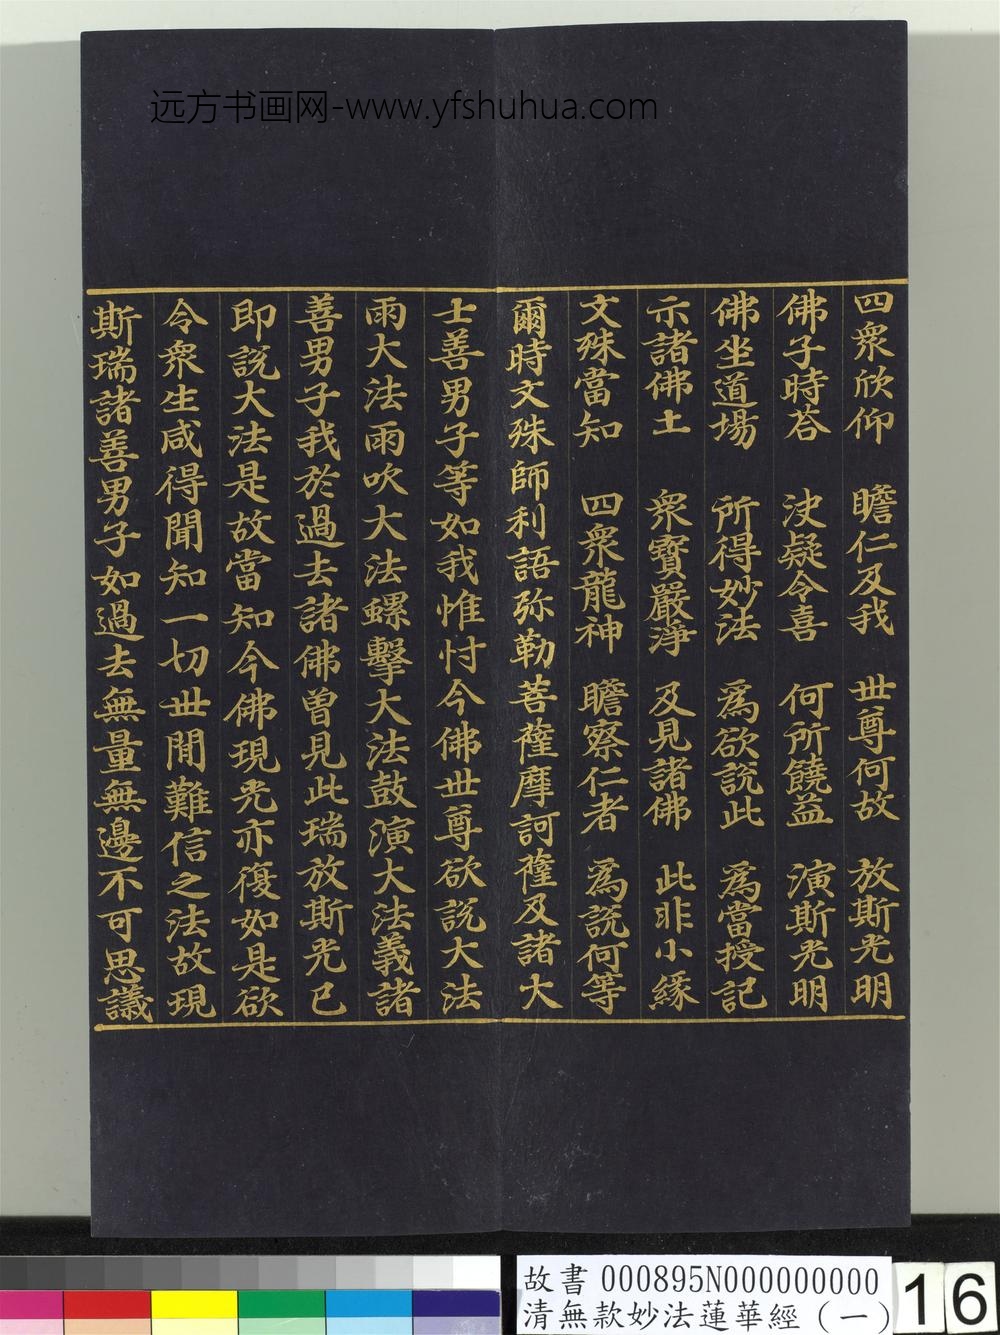 远方书画网-www.yfshuhua.com
四衆欣仰　瞻仁及我　世尊何故　放斯光明
佛子時荅　決疑令喜　何所饒益　演斯光明
佛坐道場　所得妙法　爲欲說此　爲當授記
示諸佛土　衆寶嚴淨　及見諸佛　此非小緣
文殊當知　四衆龍神　瞻察仁者　爲說何等
爾時文殊師利語弥勒菩薩摩訶薩及諸大
士善男子等如我惟忖今佛世尊欲說大法
雨大法雨吹大法螺擊大法鼓演大法義諸
善男子我於過去諸佛曾見此瑞放斯光已
即說大法是故當知今佛現光亦復如是欲
令衆生咸得聞知一切世間難信之法故現
斯瑞諸善男子如過去無量無邊不可思議
故書 000895N000000000
清無款妙法蓮華經（一）
16